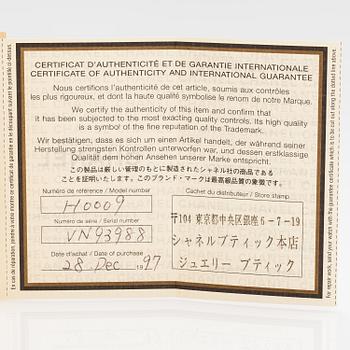 CERTIFICAT D'AUTHENTICITÉ ET DE GARANTIE INTERNATIONALE
CERTIFICATE OF AUTHENTICITY AND INTERNATIONAL GUARANTEE
Nous certifions l'authenticité de cet article, soumis aux contrôles
les plus rigoureux, et dont la haute qualité symbolise le renom de notre Marque.
We certify the authenticity of this item and confirm that
it has been subjected to the most exacting quality controls. Its high quality
is a symbol of the fine reputation of the Trademark.
Wir bestätigen, dass es sich um einen Artikel handelt, der während seiner
Herstellung strengsten Kontrollen unterworfen war, und dessen erstklassige
Qualität dem hohen Ansehen unserer Marke entspricht.
この製品は厳しい管理のもとに製造されたシャネル社の商品である
ことを証明いたします。このブランド・マークは最高級品質の象徴です。
Numéro de référence / Model number
H0009
Numéro de série / Serial number
VN93988
Date d'achat / Date of purchase
28 Dec 1997
Cachet du distributeur / Store stamp
〒104 東京都中央区銀座6-7-19
シャネルブティック本店
ジュエリー ブティック
En cas de réparation, joindre à votre montre ce certificat de garantie en le découpant suivant le pointillé ci-dessus.
For repair work, send your watch with the guarantee certificate which is to be cut out along the dotted line above.